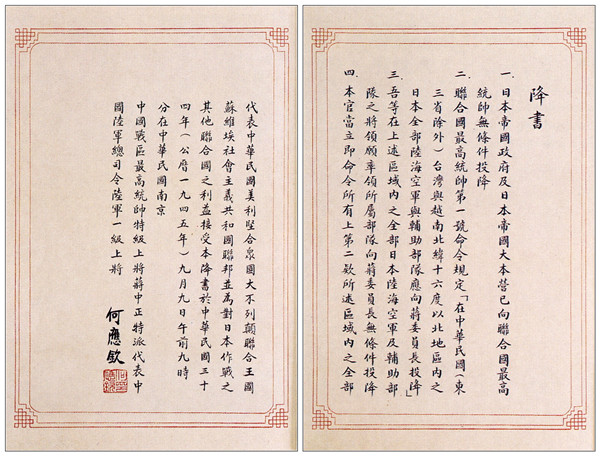 降書
一、日本帝國政府及日本帝國大本營已向聯合國最高
統帥無條件投降
二、聯合國最高統帥第一號命令規定「在中華民國(東
三省除外)台灣與越南北緯十六度以北地區內之
日本全部陸海空軍與輔助部隊應向蔣委員長投降」
三、吾等在上述區域內之全部日本陸海空軍及輔助部
隊之將領願率領所屬部隊向蔣委員長無條件投降
四、本官當立即命令所有上第二欵所述區域內之全部
代表中華民國美利堅合衆國大不列顛聯合王國
蘇維埃社會主義共和國聯邦並為對日本作戰之
其他聯合國之利益接受本降書於中華民國三十
四年(公曆一九四五年)九月九日午前九時
分在中華民國南京
中國戰區最高統帥特級上將蔣中正特派代表中
國陸軍總司令陸軍一級上將
何應欽